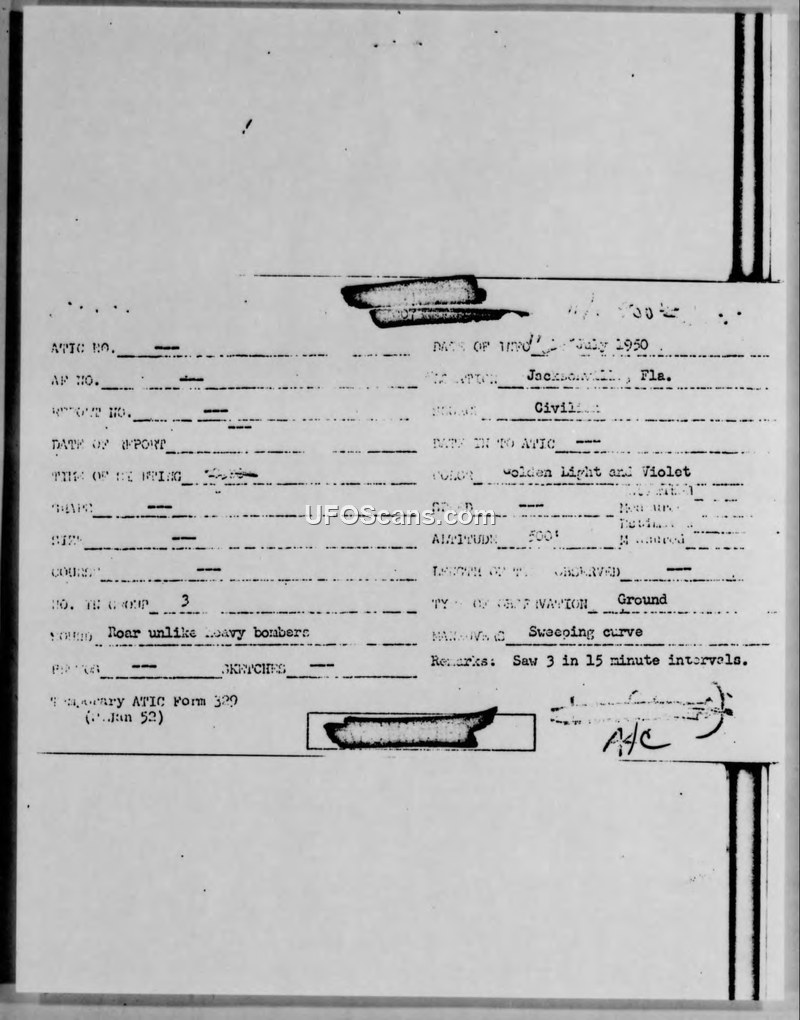 ATIC NO. --- DATE OF INFO July 1950
AF NO. --- Fla.
REPORT NO. --- Civilian
DATE OF REPORT --- DATE IN TO ATIC ---
TIME OF SIGHTING COLOR Golden Light and Violet
SHAPE --- SPEED ---
UFOScans.com
SIZE --- ALTITUDE 500'
COURSE --- LENGTH OF TIME OBSERVED ---
NO. IN GROUP 3 TYPE OF OBSERVATION Ground
SOUND Roar unlike heavy bombers MANEUVERS Sweeping curve
PHOTOS --- SKETCHES --- Remarks: Saw 3 in 15 minute intervals.
Temporary ATIC Form 329
Jan 52)
A/C